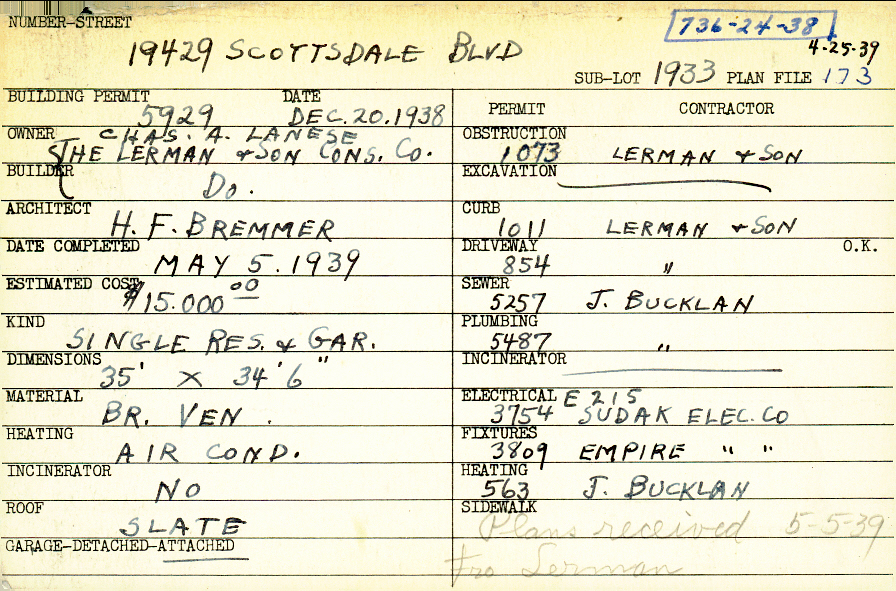 NUMBER-STREET
736-24-38
19429 SCOTTSDALE BLVD
4-25-39
SUB-LOT 1933 PLAN FILE 173
BUILDING PERMIT DATE
5929 DEC. 20. 1938
OWNER CHAS. A. LANESE
THE LERMAN & SON CONS. CO.
BUILDER
Do.
ARCHITECT
H. F. BREMMER
DATE COMPLETED
MAY 5. 1939
ESTIMATED COST
$15.000 00
KIND
SINGLE RES. & GAR.
DIMENSIONS
35' X 34'6"
MATERIAL
BR. VEN.
HEATING
AIR COND.
INCINERATOR
NO
ROOF
SLATE
GARAGE-DETACHED-ATTACHED
PERMIT CONTRACTOR
OBSTRUCTION
1073 LERMAN & SON
EXCAVATION
CURB
1011 LERMAN & SON
DRIVEWAY O.K.
854 "
SEWER
5257 J. BUCKLAN
PLUMBING
5487 "
INCINERATOR
ELECTRICAL E 215
3754 SUDAK ELEC. CO
FIXTURES
3809 EMPIRE " "
HEATING
563 J. BUCKLAN
SIDEWALK
Plans received 5-5-39
fro Lerman